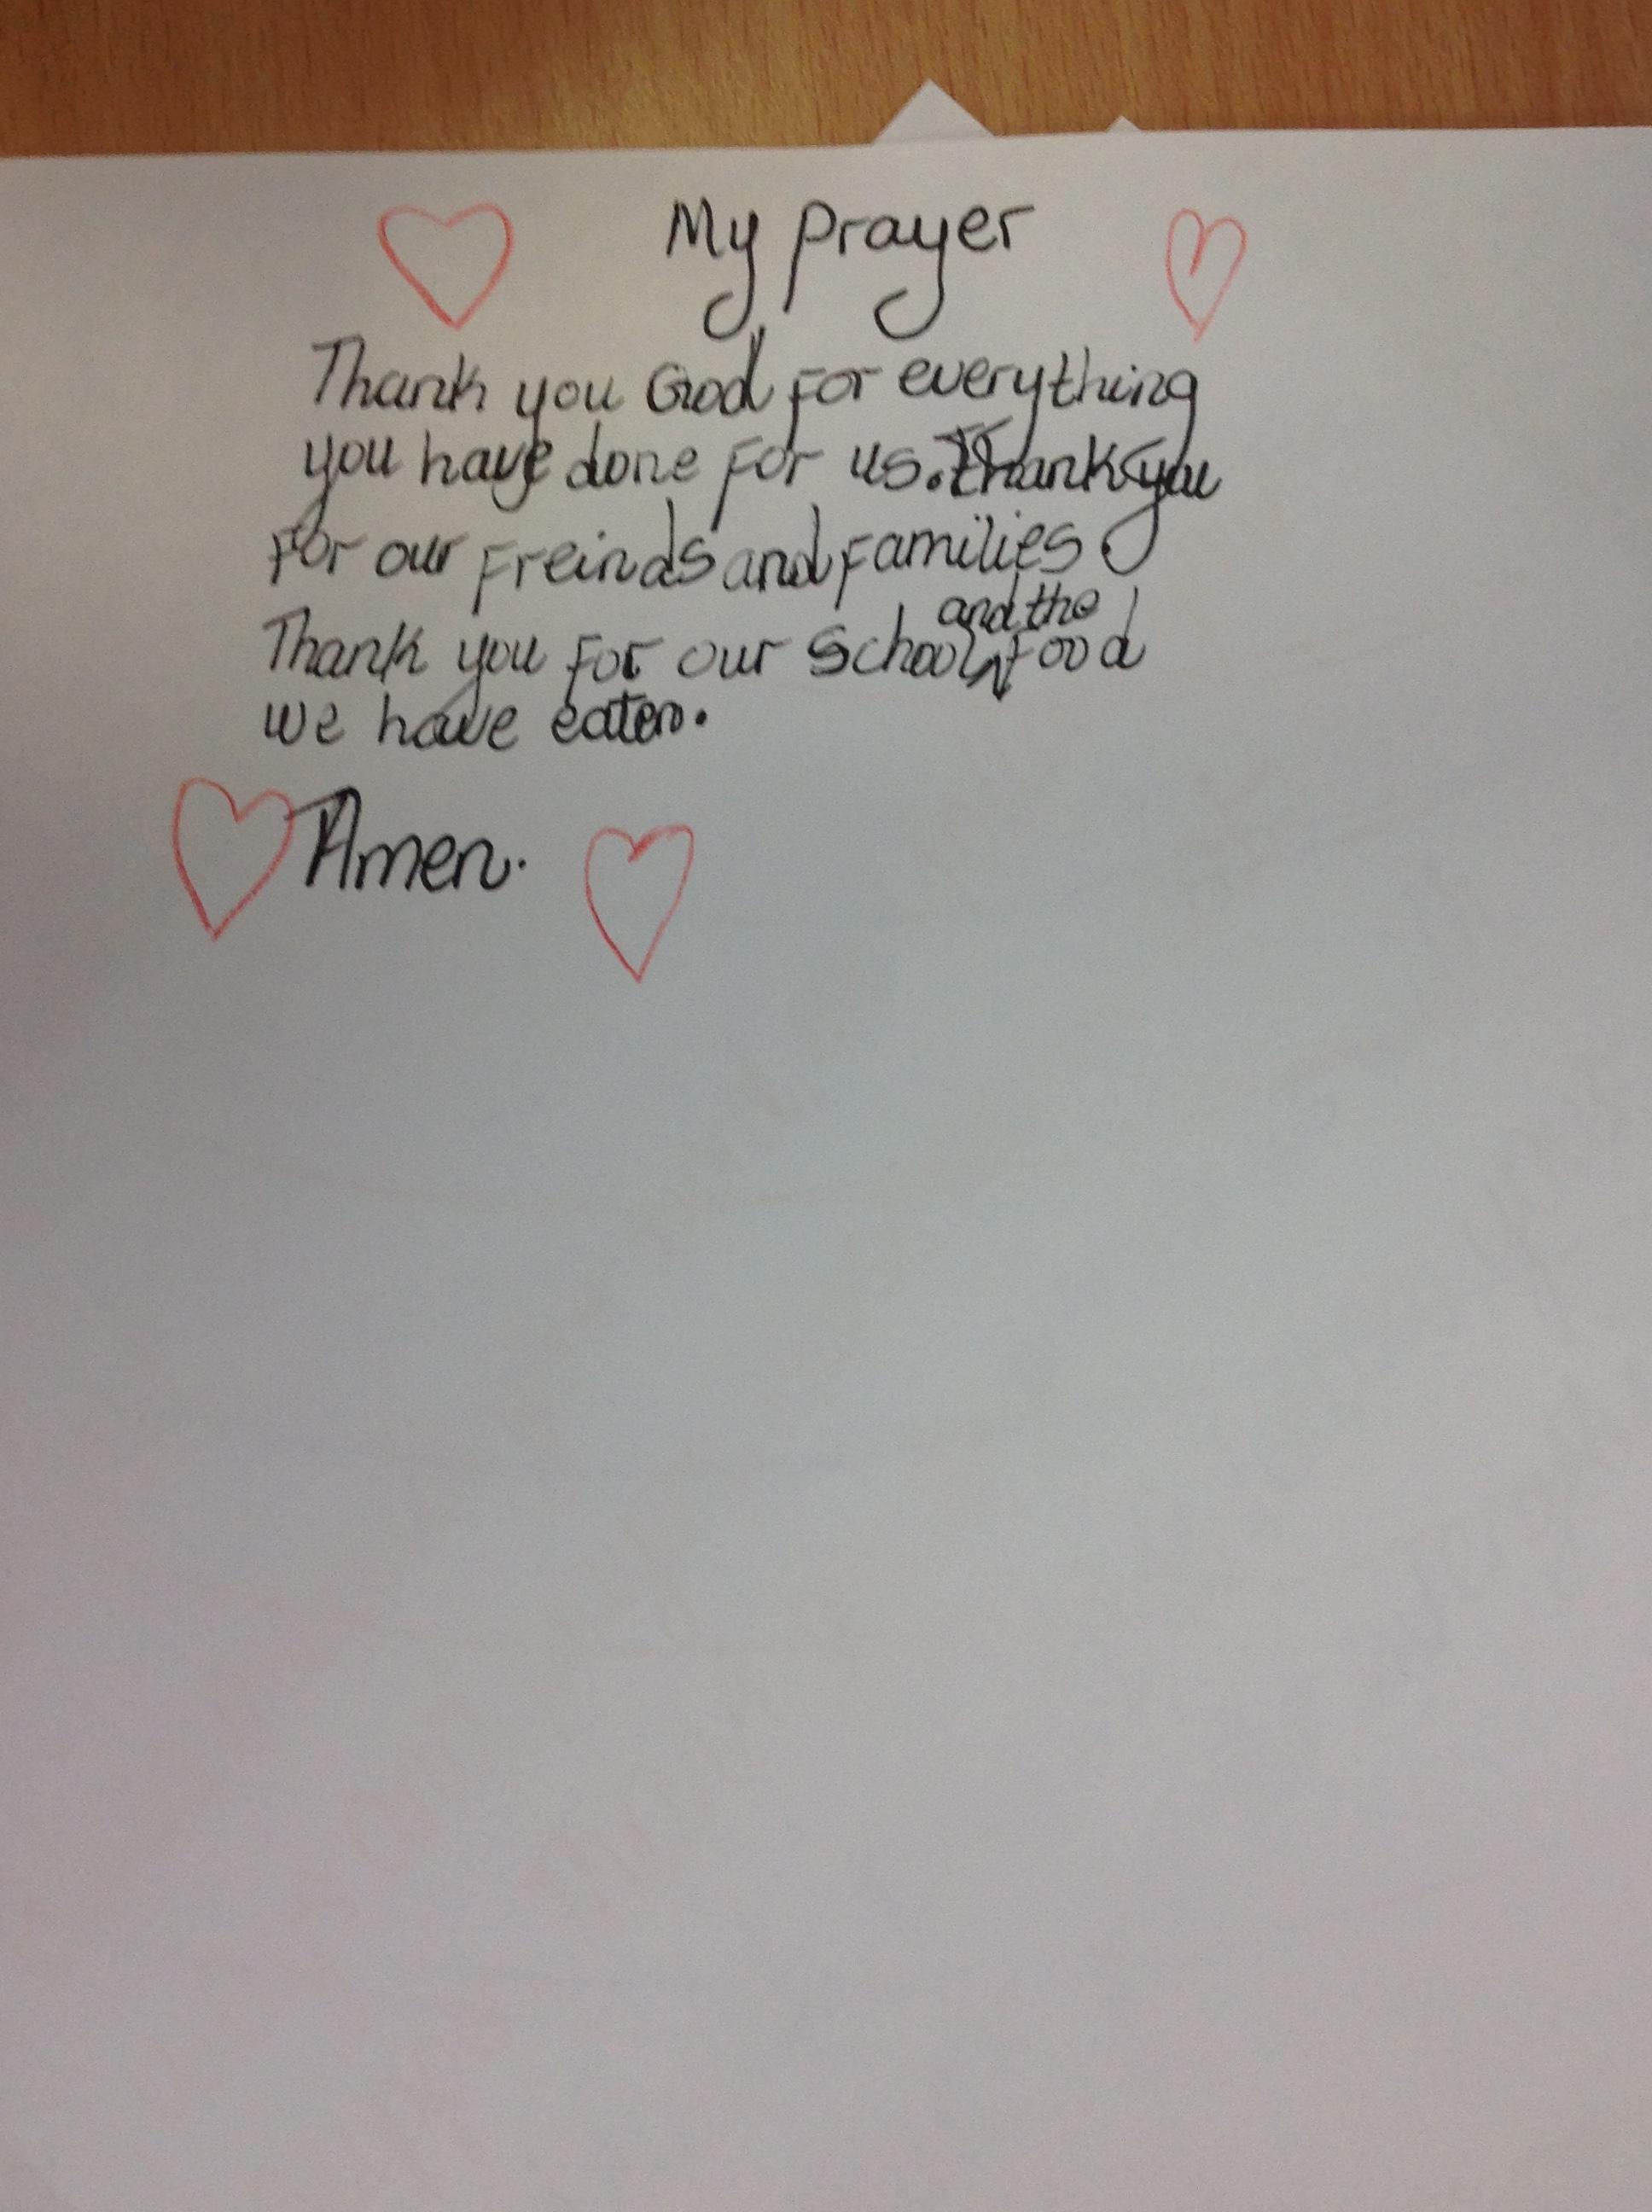 My prayer
Thank you God for everything
you have done for us. Thank you
for our freinds and families
Thank you for our School and the food
we have eaten.
Amen.